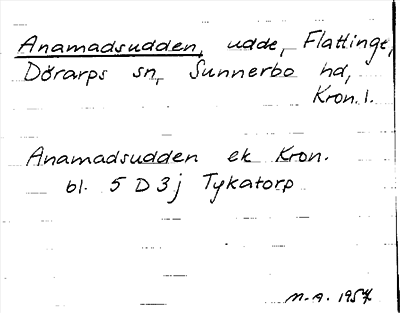 Anamadsudden, udde, Flattinge,
Dörarps sn, Sunnerbo hd,
Kron. l.
Anamadsudden ek Kron.
bl. 5 D 3 j Tykatorp
M.A. 1957